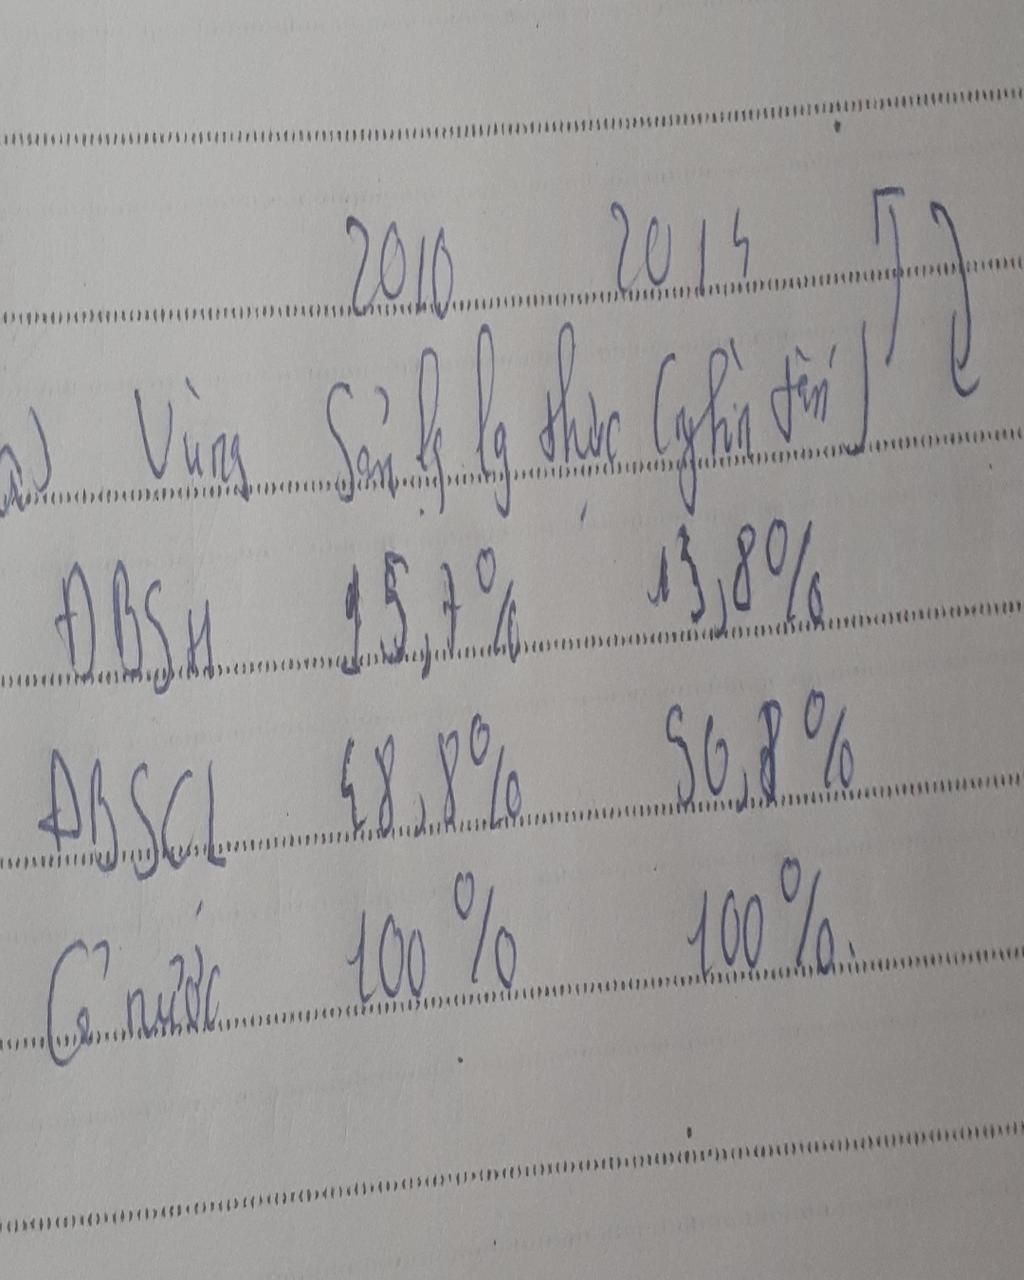 2010 2014
a) Vùng Sản lg lg thực (nghìn tấn)
ĐBSH 15,7% 13,8%
ĐBSCL 48,8% 50,8%
Cả nước 100% 100%.